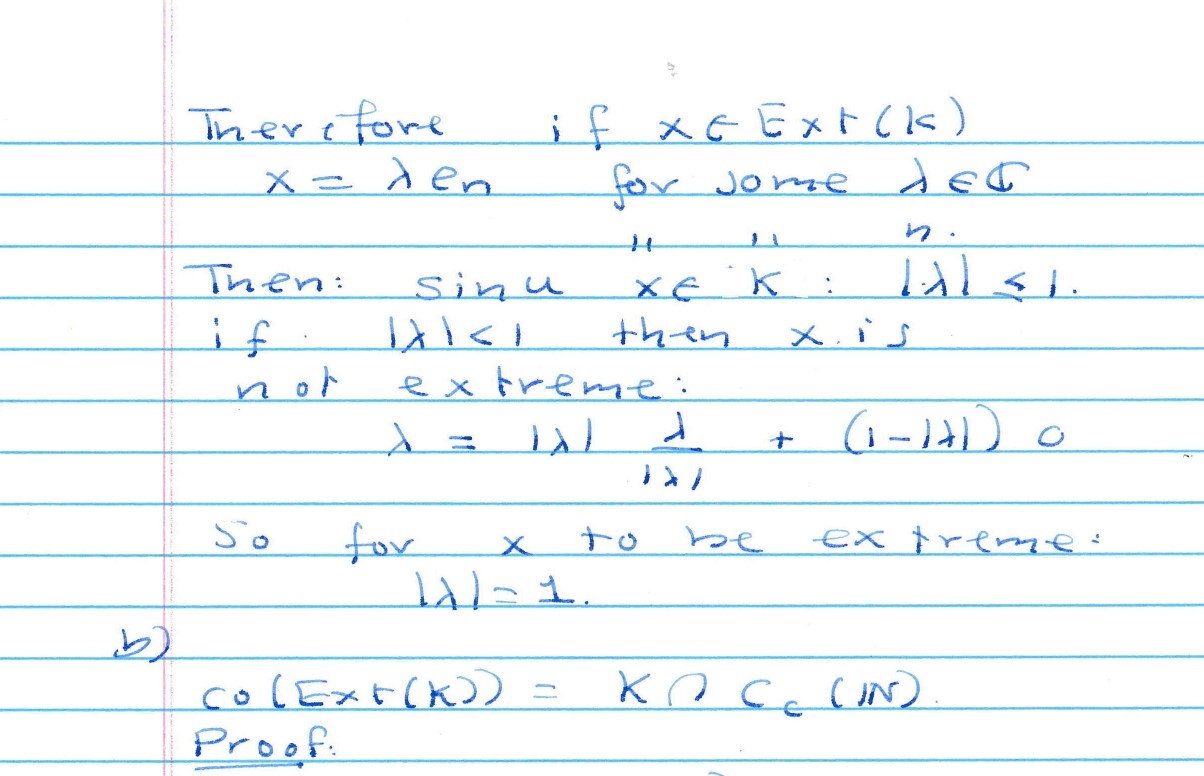 Therefore if x ∈ Ext(K)
x = λ en for some λ ∈ ℂ
" " n.
Then: since x ∈ K : |λ| ≤ 1.
if |λ| < 1 then x is
not extreme:
λ = |λ| λ/|λ| + (1-|λ|) 0
So for x to be extreme:
|λ| = 1.
b)
co(Ext(K)) = K ∩ C_c (ℕ).
Proof: